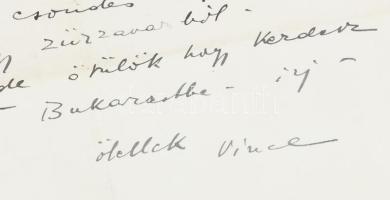 csöndes
zűrzavarból -
de örülök hogy kérdesz
- Bukarestbe - írj -
ölellek Vince